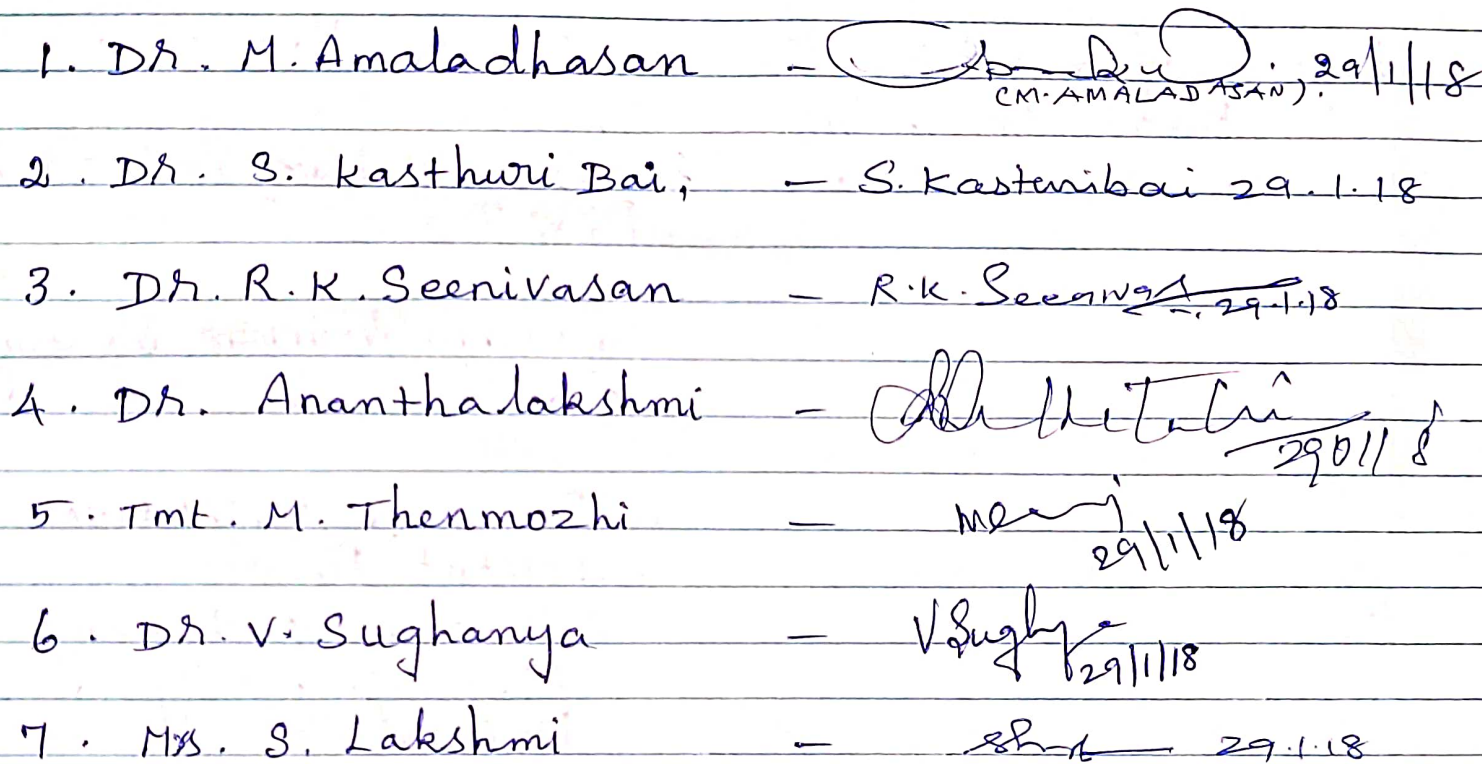 1. Dr. M. Amaladhasan - 29/1/18
(M. AMALADASAN).
2. Dr. S. Kasthuri Bai, - S. Kasturibai 29.1.18
3. Dr. R.K. Seenivasan - R.K. 29.1.18
4. Dr. Ananthalakshmi -
290118
5. Tmt. M. Thenmozhi -
29/1/18
6. Dr. V. Sughanya - 29/1/18
7. Mrs. S. Lakshmi - 29.1.18